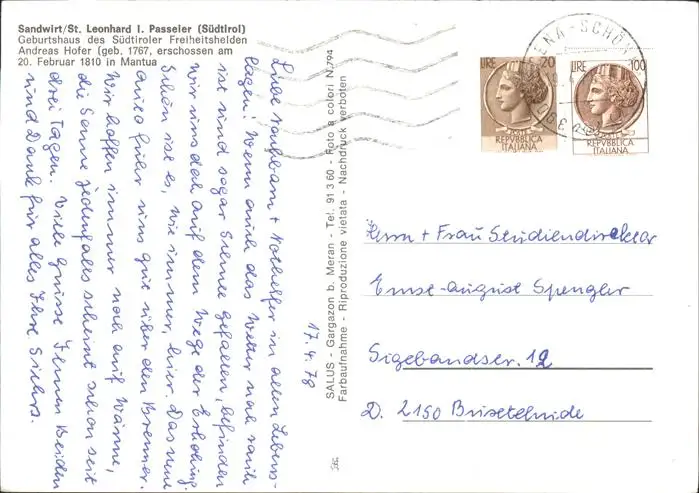 Sandwirt/St. Leonhard I. Passeier (Südtirol)
Geburtshaus des Südtiroler Freiheitshelden
Andreas Hofer (geb. 1767, erschossen am
20. Februar 1810 in Mantua
Liebe Nachbarn + Nothelfer in allen Lebens-
lagen! Wenn auch das Wetter noch rauh
ist und sogar Schnee gefallen, befinden
wir uns doch auf dem Wege der Erholung.
Schön ist es, wie immer, hier. Das neue
Auto fuhr uns gut über den Brenner.
Wir hoffen immer noch auf Wärme,
die Sonne jedenfalls scheint schon seit
drei Tagen. Viele Grüsse Ihnen Beiden
und Dank für alles Ihre
17.4.78
SALUS - Gargazon b. Meran - Tel. 91 3 60 - Foto a colori N.794
Farbaufnahme - Riproduzione vietata - Nachdruck verboten
LIRE 20
REPVBBLICA
ITALIANA
LIRE 100
REPVBBLICA
ITALIANA
Herrn + Frau Studiendirektor
Ernst-August Spengler
Sigebandstr. 12
D. 2150 Buxtehude